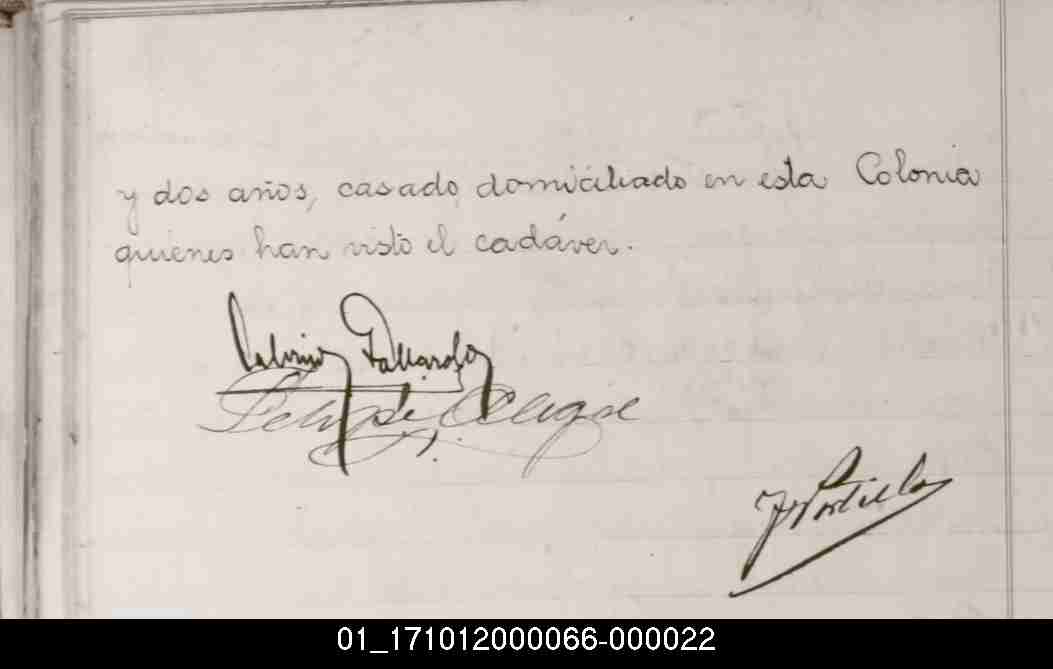 y dos años, casado, domiciliado en esta Colonia
quienes han visto el cadáver.
Gallardo
Felipe
Portillo
01_171012000066-000022